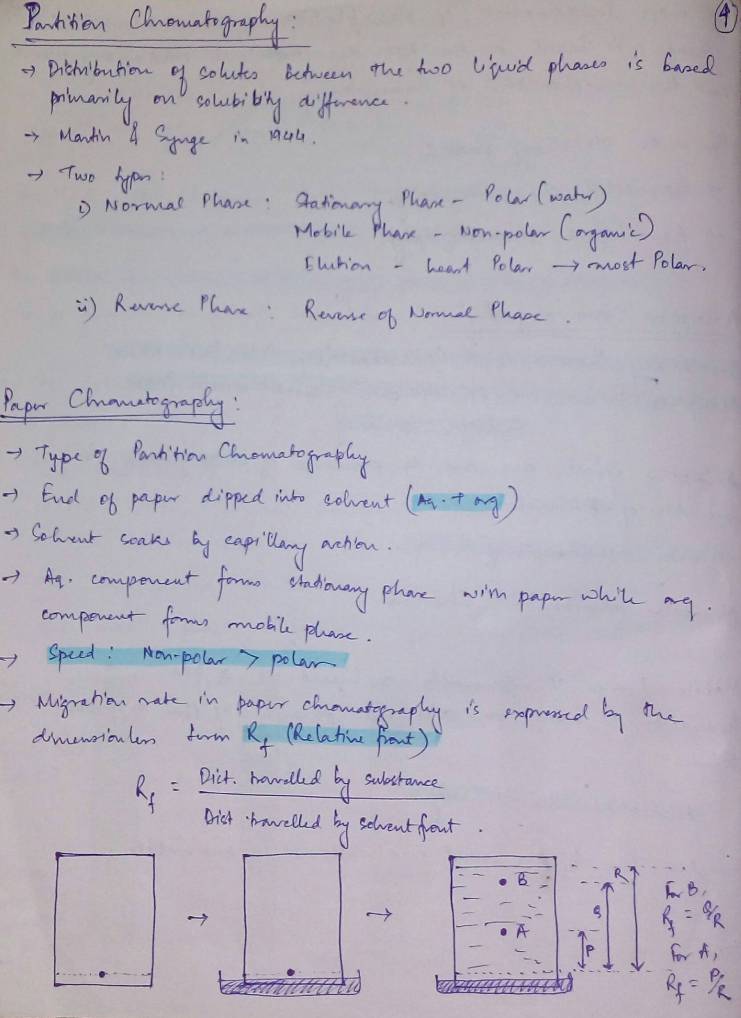 4
Partition Chromatography:
→ Distribution of solutes between the two liquid phases is based
primarily on solubility difference.
→ Martin & Synge in 1944.
→ Two types:
i) Normal Phase: Stationary Phase - Polar (water)
Mobile Phase - Non-polar (organic)
Elution - least Polar → most Polar.
ii) Reverse Phase: Reverse of Normal Phase.
Paper Chromatography:
→ Type of Partition Chromatography
→ End of paper dipped into solvent (Aq. + org)
→ Solvent soaks by capillary action.
→ Aq. component forms stationary phase with paper while org.
component forms mobile phase.
→ Speed: Non-polar > polar
→ Migration rate in paper chromatography is expressed by the
dimensionless term Rf (Relative front)
Rf = Dist. travelled by substance
Dist travelled by solvent front.
→ → B A P Q R
For B,
Rf = Q/R
For A,
Rf = P/R